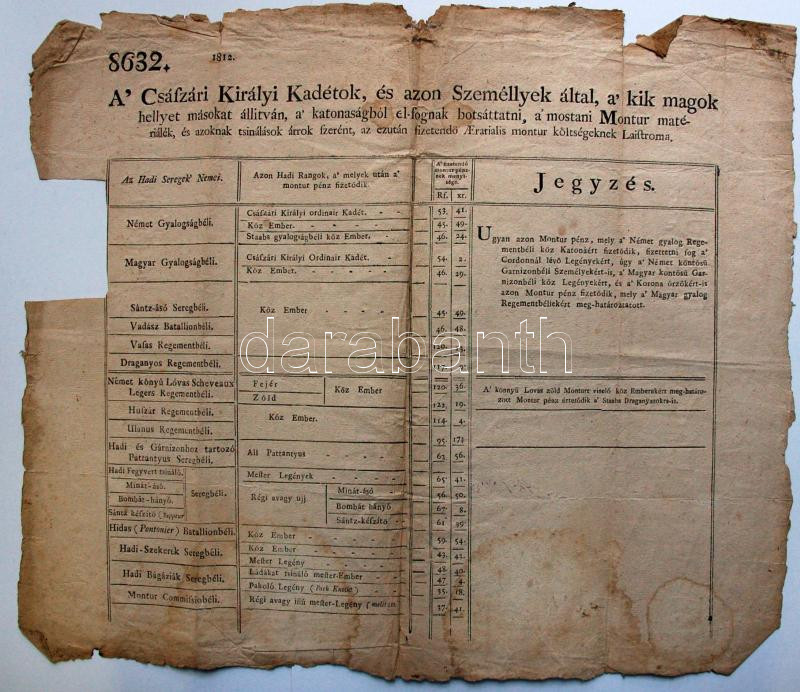 8632.
1812.
A' Császári Királyi Kadétok, és azon Személlyek által, a' kik magok
hellyet másokat állitván, a' katonaságból el-fognak botsáttatni, a' mostani Montur maté-
riálék, és azoknak tsinálások árrok szerént, az ezután fizetendő Æratialis montur költségeknek Laistroma.
Az Hadi Seregek' Nemei.
Azon Hadi Rangok, a' melyek után a'
montur pénz fizetődik.
A' fizetendő
montur pénz-
nek menyi-
sége.
Rf. xr.
Jegyzés.
Német Gyalogságbéli.
Császári Királyi ordinair Kadét. - - 53. 41.
Köz Ember. - - - - 45. 49.
Staabs gyalogságbéli köz Ember. - - 46. 24.
Magyar Gyalogságbéli.
Császári Királyi Ordinair Kadét. - - 54. 2.
Köz Ember. - - - - 46. 29.
Ugyan azon Montur pénz, mely a' Német gyalog Rege-
mentbéli köz Katonáért fizetődik, fizettetni fog a'
Gordonnál lévő Legényekért, úgy a' Német köntösű
Garnizonbéli Személyekért-is, a' Magyar köntösű Gar-
nizonbéli köz Legényekért, és a' Korona örzőkért-is
azon Montur pénz fizetődik, mely a' Magyar gyalog
Regementbéliekért meg-határoztatott.
Sántz-ásó Seregbéli.
Vadász Batallionbéli.
Vasas Regementbéli.
Draganyos Regementbéli.
Köz Ember - - - - 45. 49.
46. 48.
120.
117.
darabanth
Német könyű Lóvas Scheveaux
Legers Regementbéli.
Fejér
Zöld
Köz Ember
120. 36.
123. 19.
A' könnyű Lovas zöld Monturt viselő köz Emberekért meg-határo-
znet Montur pénz értetődik a' Staabs Draganyasokra-is.
Huszár Regementbéli.
Ulanus Regementbéli.
Köz Ember.
114. 4.
95. 17½
Hadi és Gárnizonhoz tartozó
Pattantyus Seregbéli.
All Pattantyus - - - - 63. 56.
Hadi Fegyvert tsináló.
Minát-ásó.
Bombát-hányó.
Sántz készítő (Sappeur)
Seregbéli.
Mester Legények - - - - 65. 41.
Régi avagy ujj
Minát-ásó - 56. 50.
Bombát hányó 67. 8.
Sántz-készitő - 61. 39.
Hidas (Pontonier) Batallionbéli.
Köz Ember - - - - 59. 54.
Hadi-Szekerek Seregbéli.
Köz Ember - - - - 43. 42.
Mester Legény - - - - 48. 40.
Hadi Bágáziák Seregbéli.
Ládákat tsináló mester-Ember - - 47. 4.
Pakoló Legény (Park Knecht) - - 35. 18.
Montur Commissiobéli.
Régi avagy ifiú mester-Legény 37. 41.